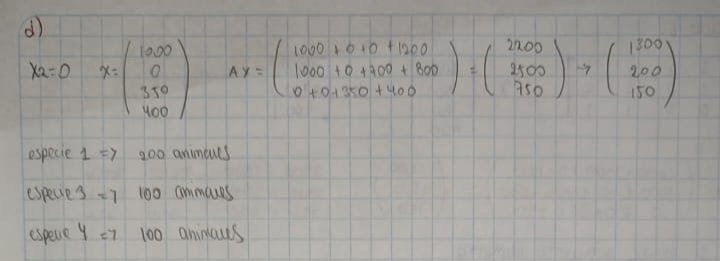 d)
X2=0 X= (1000 0 350 400) AX= (1000+0+0+1200 1000+0+700+800 0+0+350+400) = (2200 2500 750) → (1300 200 150)
especie 1 => 200 animales
especie 3 => 100 animales
especie 4 => 100 animales